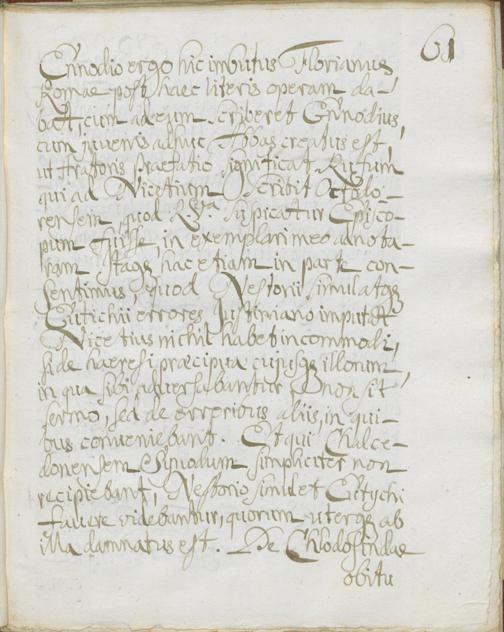 61
Ennodio ergo hic imbutus Florianus
Romae post haec literis operam da-
bat, cum ad eum scriberet Ennodius,
cum juvenis adhuc Abbas creatus est,
ut Aratoris Praefatio significat. Rufum
qui ad Nicetium scribit Octodo-
rensem, quod R. Vª suspicatur Episco-
pum fuisse, in exemplari meo adnota-
ram. Itaq, hac etiam in parte con-
sentimus, quod Nestorii simul atq,
Eutichii errores Justiniano imputat
Nicetius nichil habet incommodi,
si de haeresi praecipua cujusq, illorum,
in qua sibi adversabantur non sit
sermo, sed de erroribus aliis, in qui-
bus conveniebant. Et qui Chalce-
donensem Synodum simpliciter non
recipiebant, Nestorio simul et Eutychi
favere videbantur, quorum uterq, ab
illa damnatus est. De Chlodosindae
obitu